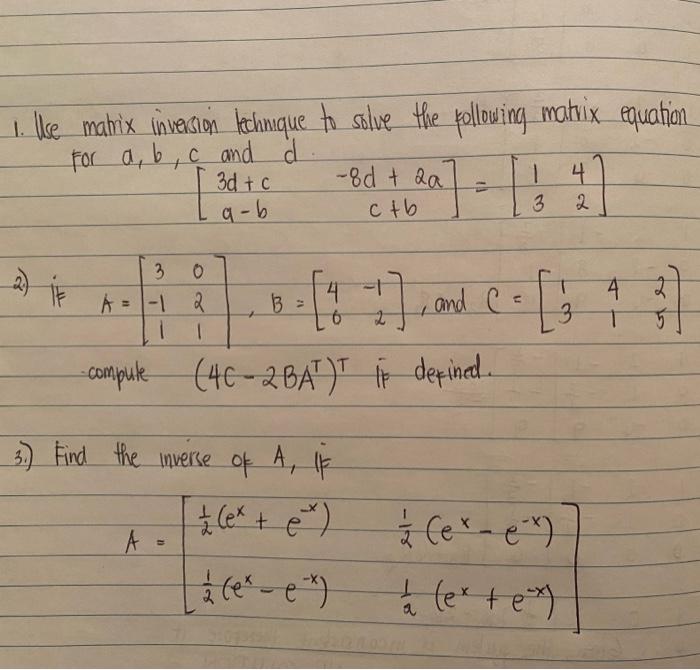 1. Use matrix inversion technique to solve the following matrix equation
For a, b, c and d.
[ 3d + c   -8d + 2a ] = [ 1 4 ]
[ a - b   c + b ]   [ 3 2 ]
2.) IF A = [ 3 0 ; -1 2 ; 1 1 ], B = [ 4 -1 ; 0 2 ], and C = [ 1 4 2 ; 3 1 5 ]
compute (4C - 2BA^T)^T IF defined.
3.) Find the inverse of A, IF
A = [ 1/2 (e^x + e^-x)   1/2 (e^x - e^-x) ]
[ 1/2 (e^x - e^-x)   1/2 (e^x + e^-x) ]